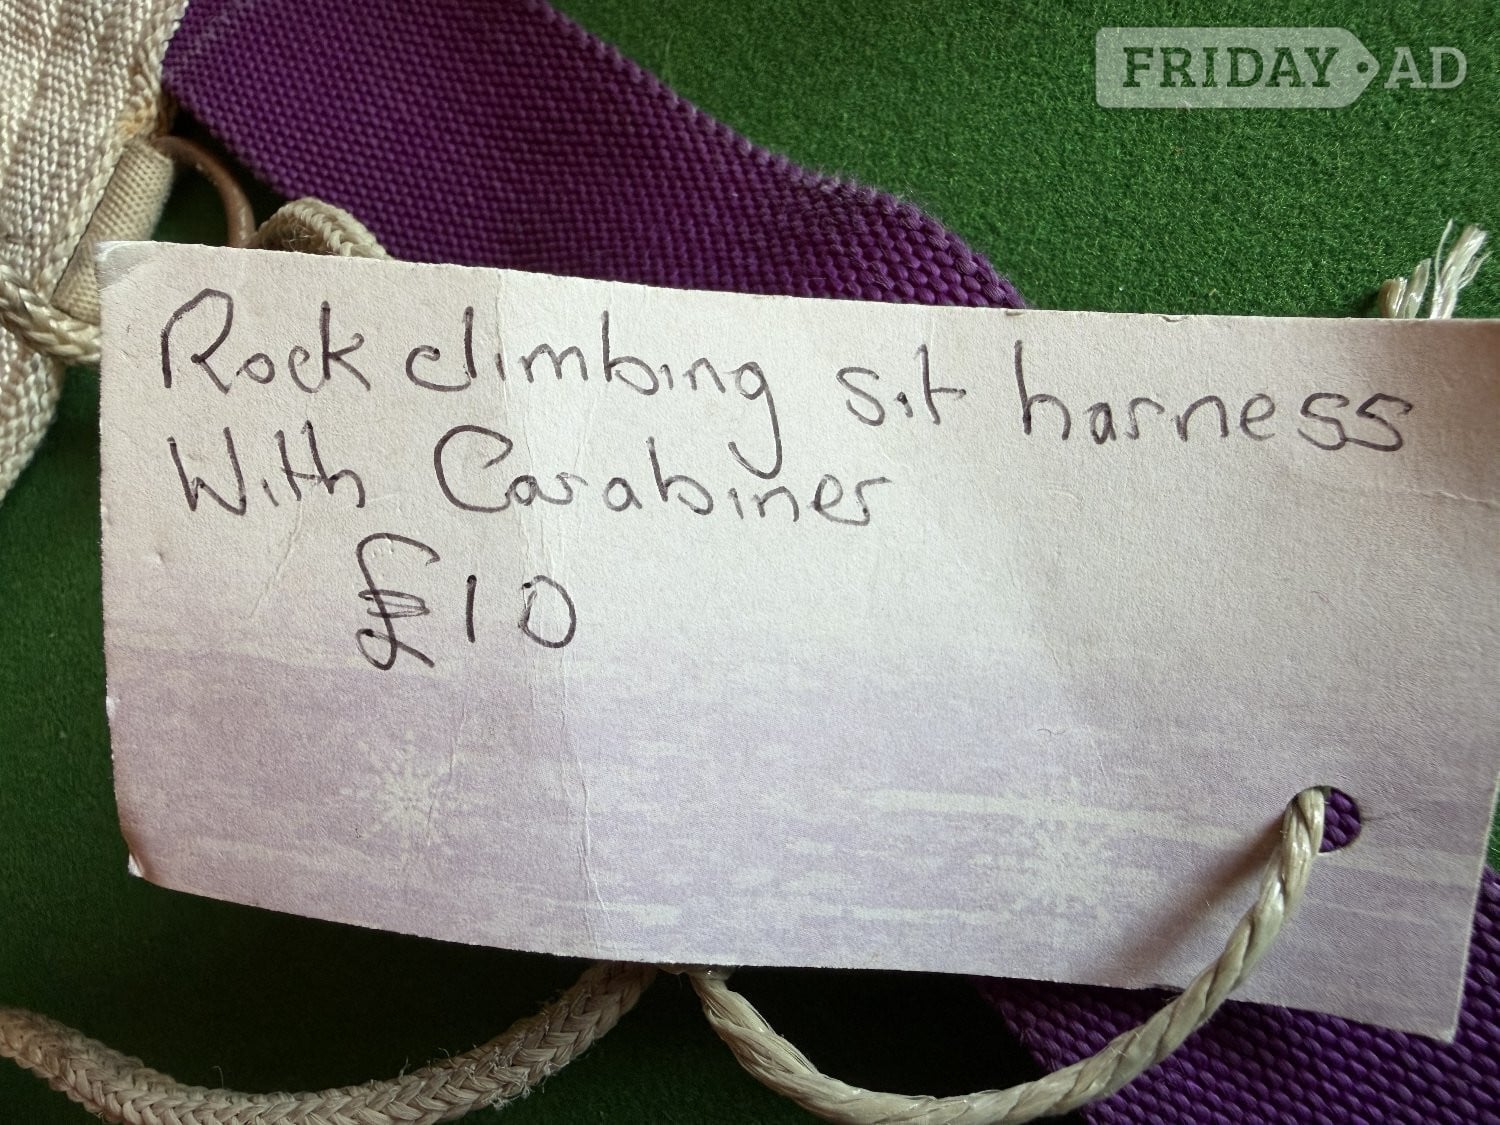 FRIDAY AD
Rock climbing sit harness
With Carabiner
£10